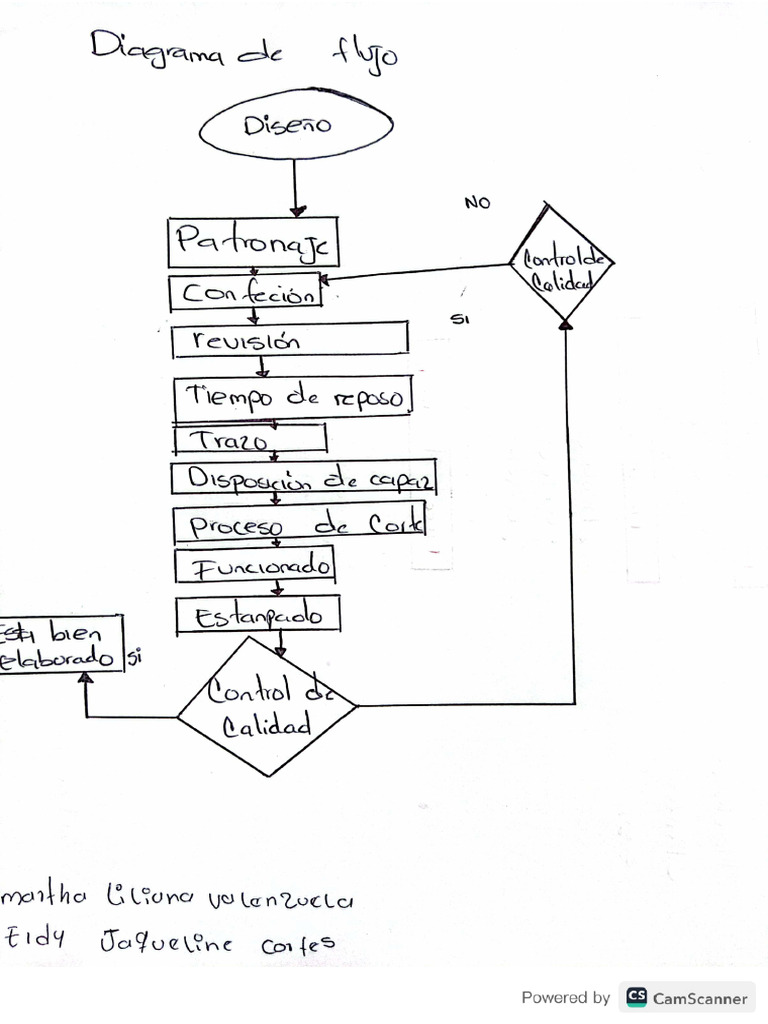 Diagrama de flujo
Diseño
NO
Patronaje
Control de
Calidad
Confeción
SI
revisión
Tiempo de reposo
Trazo
Disposición de capaz
Proceso de Corte
Funcionado
Estanpado
Esta bien
elaborado si
Control de
Calidad
martha liliana valenzuela
Eidy Jaqueline cortes
Powered by CS CamScanner